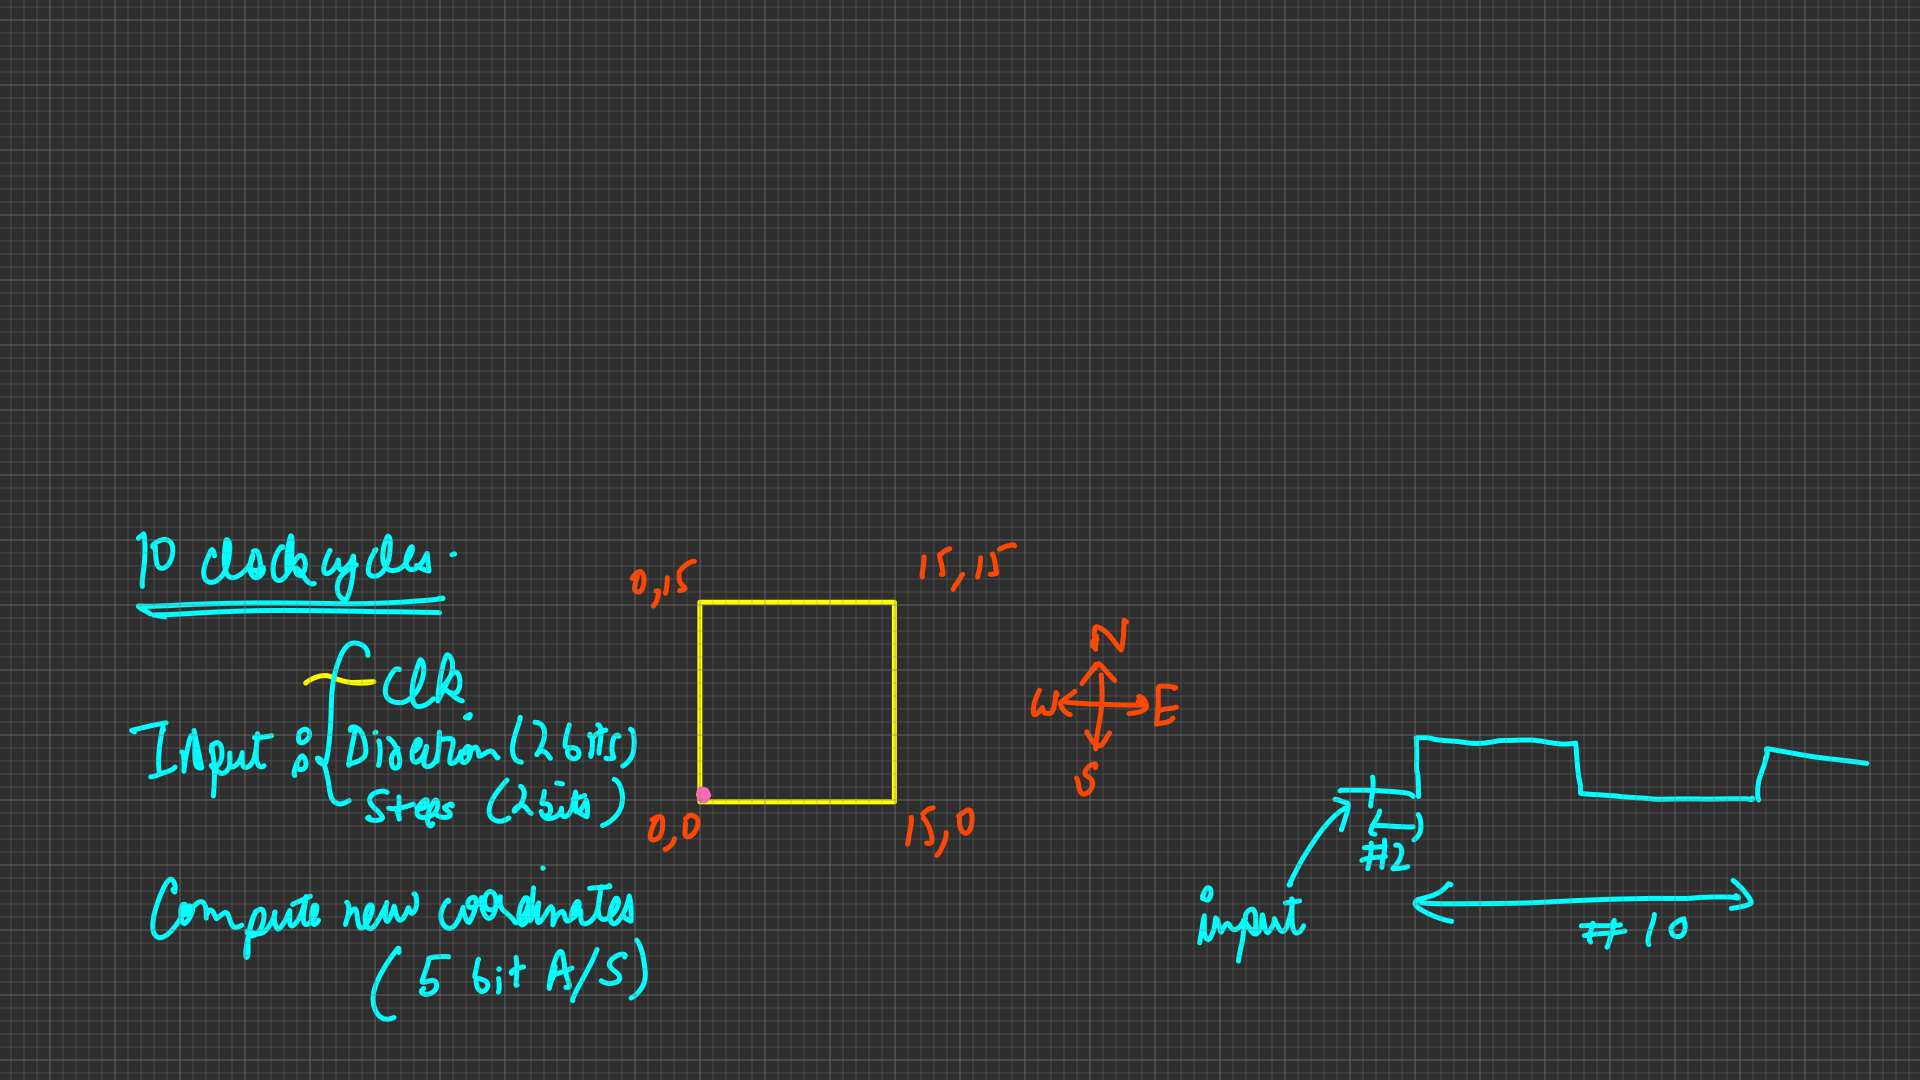 10 clock cycles.
Clk
Input : Direction (2 bits)
Steps (2 bits)
Compute new coordinates
(5 bit A/S)
0,15
15,15
0,0
15,0
N
W
E
S
#2
input
#10